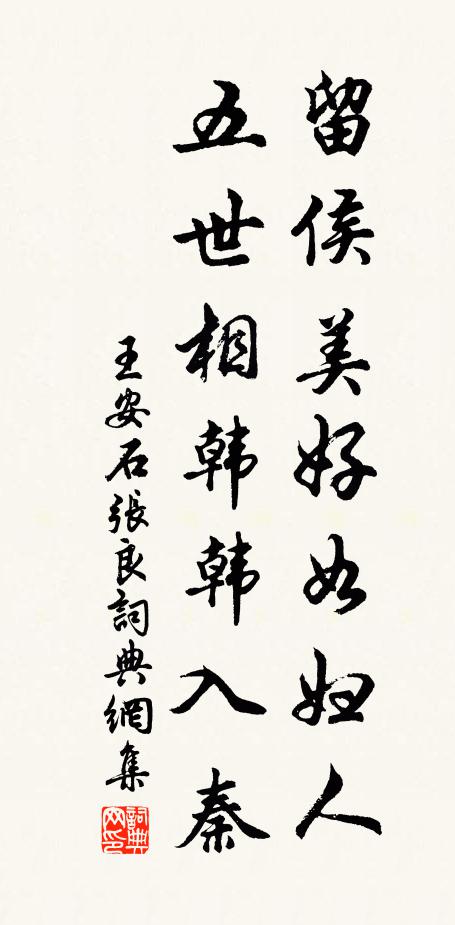 留侯美好如妇人
五世相韩韩入秦
王安石張良詞典網集
詞典网印